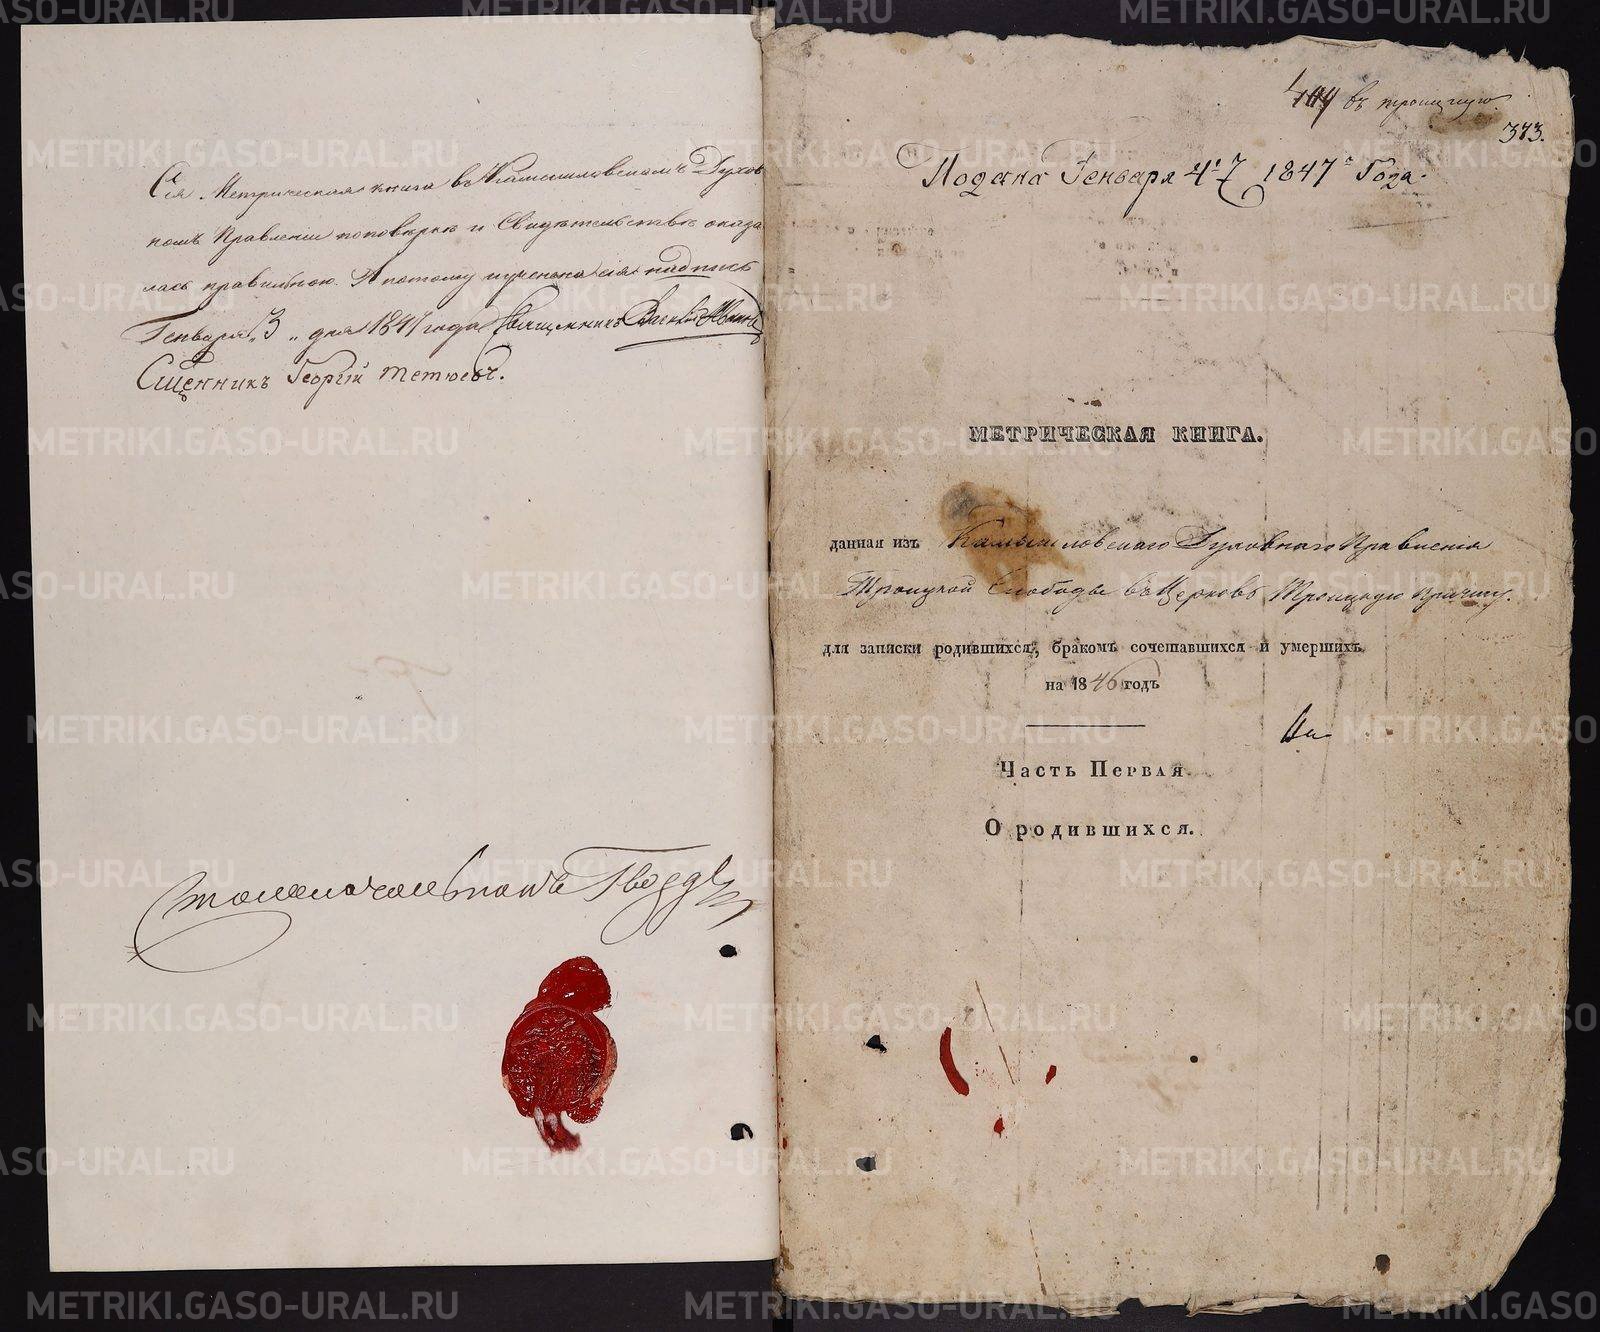 Сія Метрическая книга въ Камышловскомъ Духов
номъ Правленіи поповѣркѣ и Свидѣтельствѣ оказа
лась правильною. А потому
надпись
Генваря „3„ дня 1847 года Священникъ Василій
Сщенникъ Георгій
столоначальникъ
въ троицкую
373.
Подана Генваря 1847 Года.
МЕТРИЧЕСКАЯ КНИГА.
данная изъ Камышловскаго Духовнаго Правленія
Троицкой Слободы въ Церковь Троицкую причту.
для записки родившихся, бракомъ сочетавшихся и умершихъ
на 1846 годъ
Часть Первая.
О родившихся.
METRIKI.GASO-URAL.RU